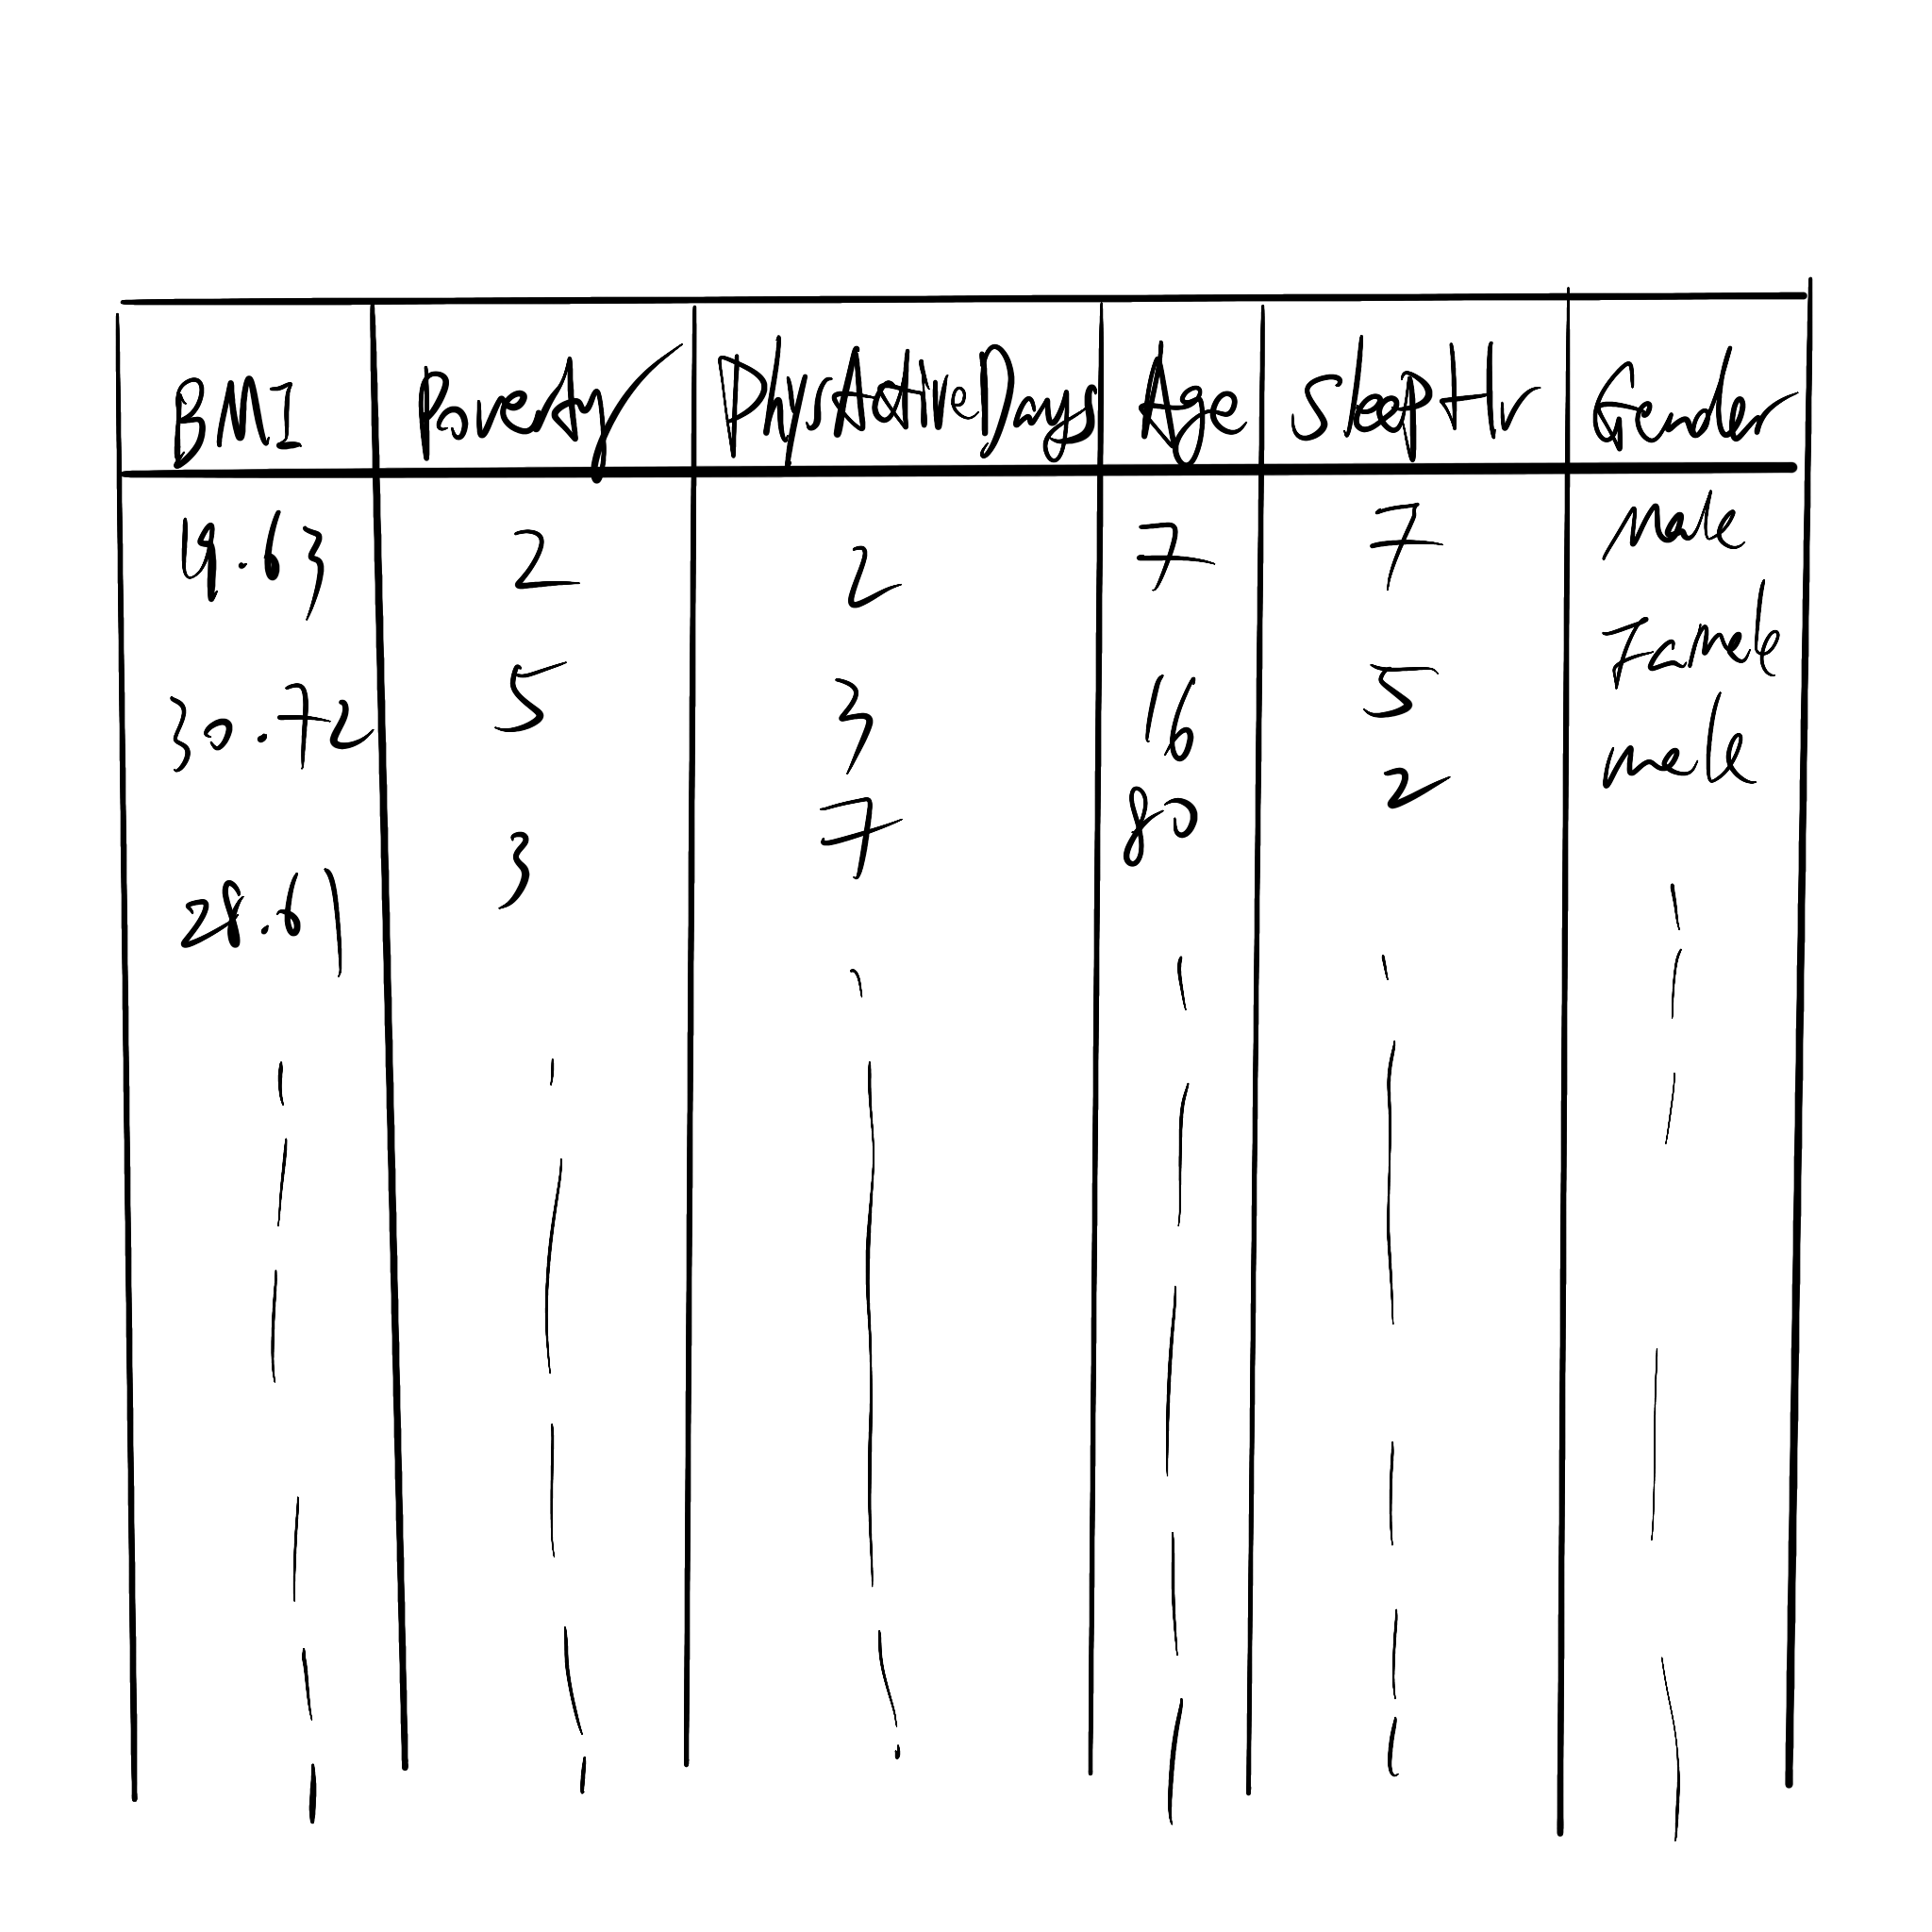 BMI Poverty PhysActiveDays Age SleepHr Gender
19.63 2 2 7 7 male
30.72 5 3 16 5 Female
28.61 3 7 80 2 male